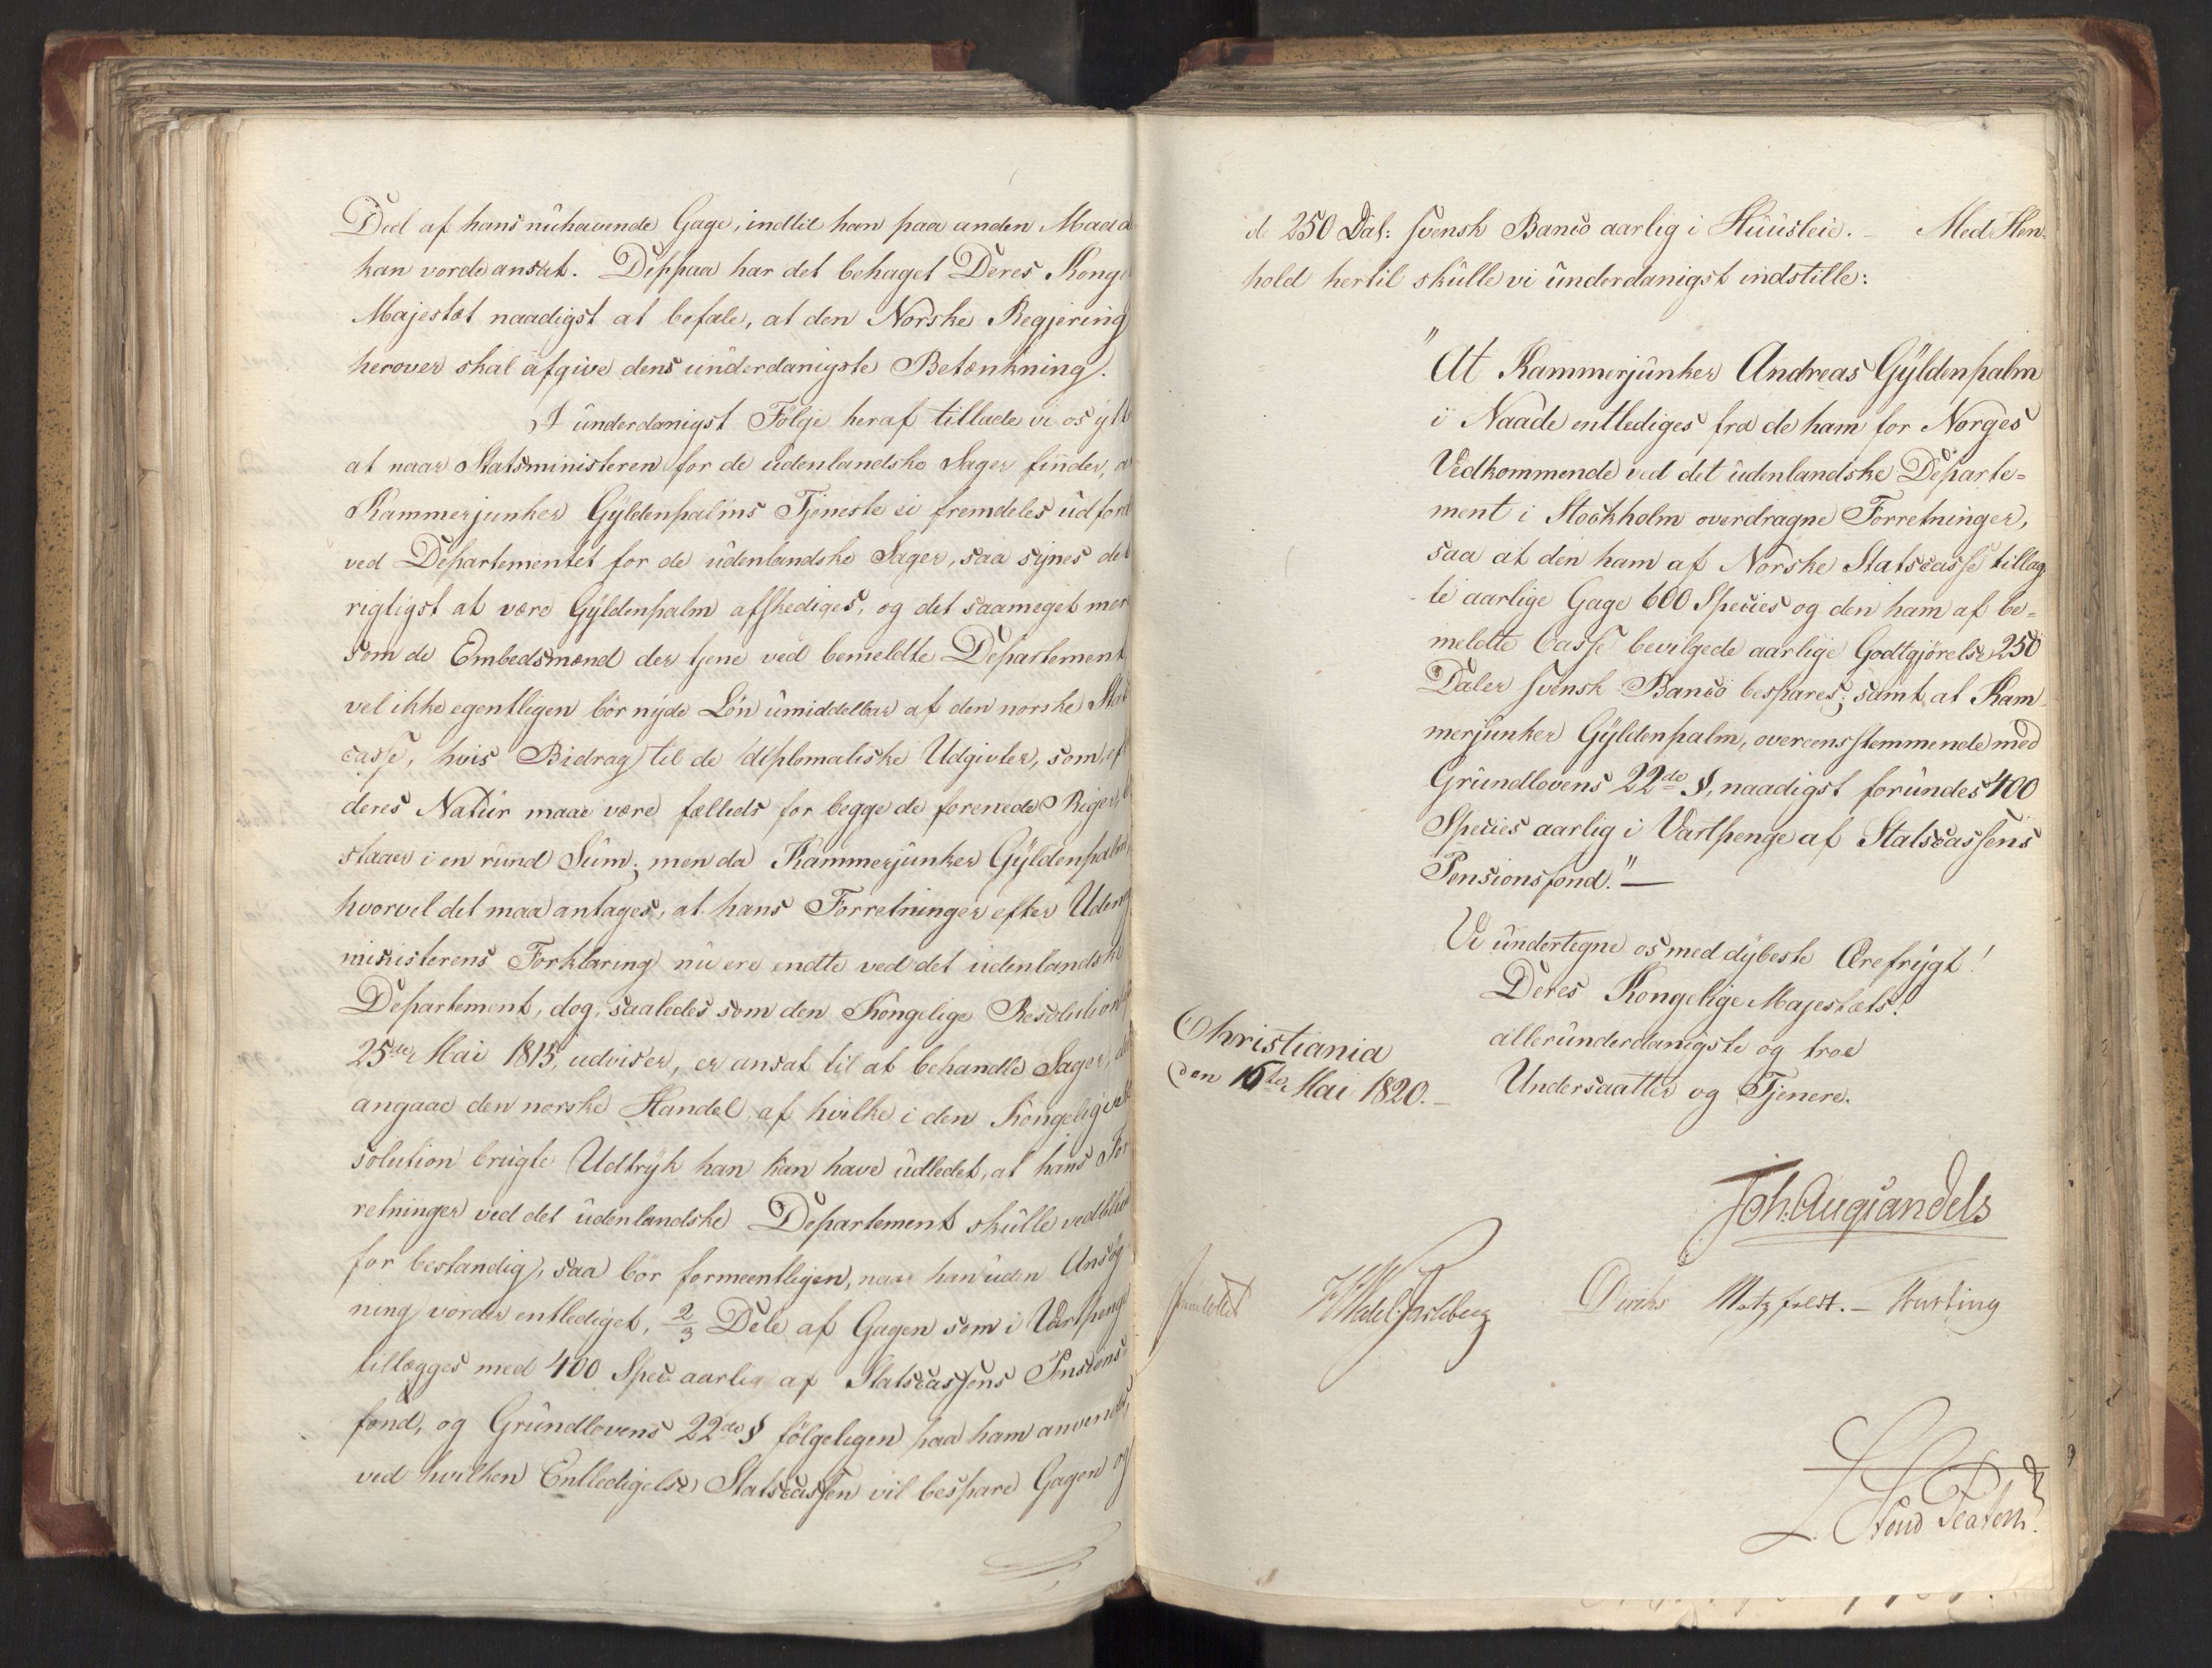 Deel af hans nuhavende Gage, indtil han paa anden Maade
kan vorde ansat. Derpaa har det behaget Deres Konge
Majestæt naadigst at befale, at den Norske Regjering
herover skal afgive dens underdanigste Betænkning.
I underdanigst Følge heraf tillade vi os ytt
at naar Statsministeren for de udenlandske Sager finder, a
Kammerjunker Gyldenpalms Tjeneste ei fremdeles udford
ved Departementet for de udenlandske Sager, saa synes det
rigtigst at være Gyldenpalm afskediges, og det saameget mer
som de Embedsmænd der tjene ved bemeldte Departement
vel ikke egentligen bør nyde Løn umiddelbar af den norske Stat
casse, hvis Bidrag til de diplomatiske Udgivter, som, ef
deres Natur maae være fælleds for begge de forenede Riger, b
staaer i en rund Sum; men da Kammerjunker Gyldenpalm,
hvorvel det maa antages, at hans Forretninger efter Udenr
ministerens Forklaring nu ere endte ved det udenlandske
Departement, dog, saaledes som den Kongelige Resolution af
25de Mai 1815, udviser, er ansat til at behandle Sager, der
angaae den norske Handel, af hvilke i den Kongelige Re
solution brugte Udtryk han kan have udledet, at hans For
retninger ved det udenlandske Departement skulle vedblive
for bestandig, saa bør formeentligen, naar han uden Ansøg
ning vorder entlediget, 2/3 Dele af Gagen som i Vartpenge
tillægges med 400 Spec aarlig af Statscassens Pensions=
fond, og Grundlovens 22de § følgeligen paa ham anvendes,
ved hvilken Entledigelse Statscassen vil bespare Gagen og
de 250 Dal: svensk Banco aarlig i Huusleie. – Med Hen-
hold hertil skulle vi underdanigst indstille:
"At Kammerjunker Andreas Gyldenpalm
i Naade entlediges fra de ham for Norges
Vedkommende ved det udenlandske Departe=
ment i Stockholm overdragne Forretninger,
saa at den ham af Norske Statscasse tillag
te aarlige Gage 600 Species og den ham af be=
meldte Casse bevilgede aarlige Godtgjørelse 250
Daler svensk Banco bespares; samt at Kam
merjunker Gyldenpalm, overeensstemmende med
Grundlovens 22de §, naadigst forundes 400
Species aarlig i Vartpenge af Statscassens
Pensionsfond."—
Vi undertegne os med dybeste Ærefrygt!
Deres Kongelige Majestæts!
allerunderdanigste og troe
Undersaatter og Tjenere.
Christiania
den 16de Mai 1820.–
Joh. Aug: Sandels
Sommerfeldt HWedel Jarlsberg Diriks Motzfeldt. – Krefting